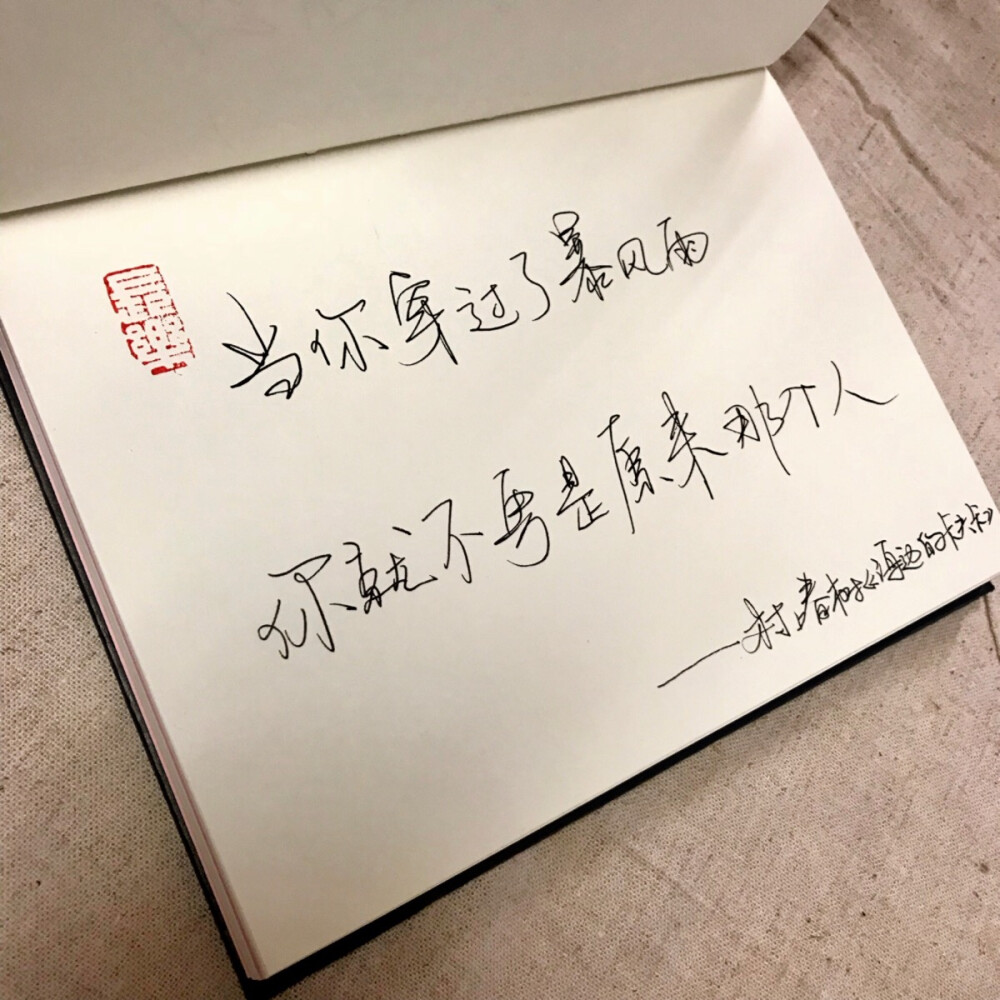 当你穿过了暴风雨
你就不再是原来那个人
——村上春树《海边的卡夫卡》